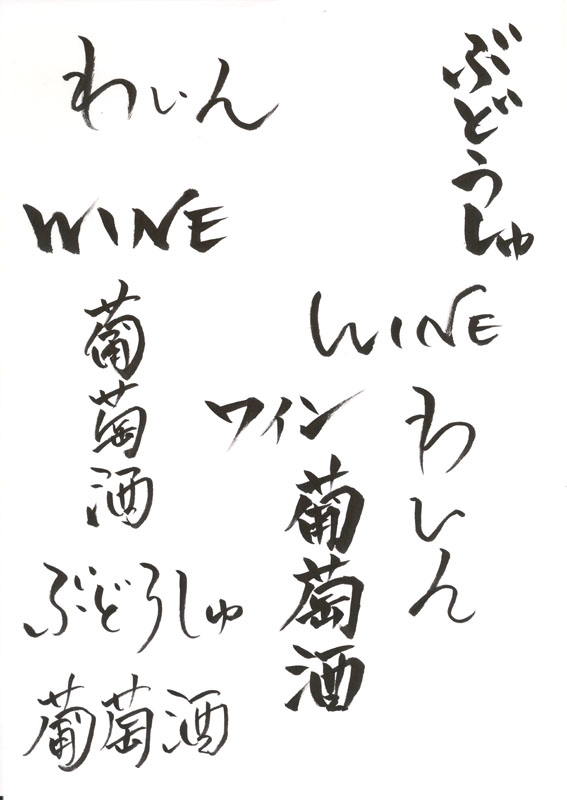 わいん
ぶどうしゅ
WINE
葡萄酒
WINE
ワイン
わいん
葡萄酒
ぶどうしゅ
葡萄酒